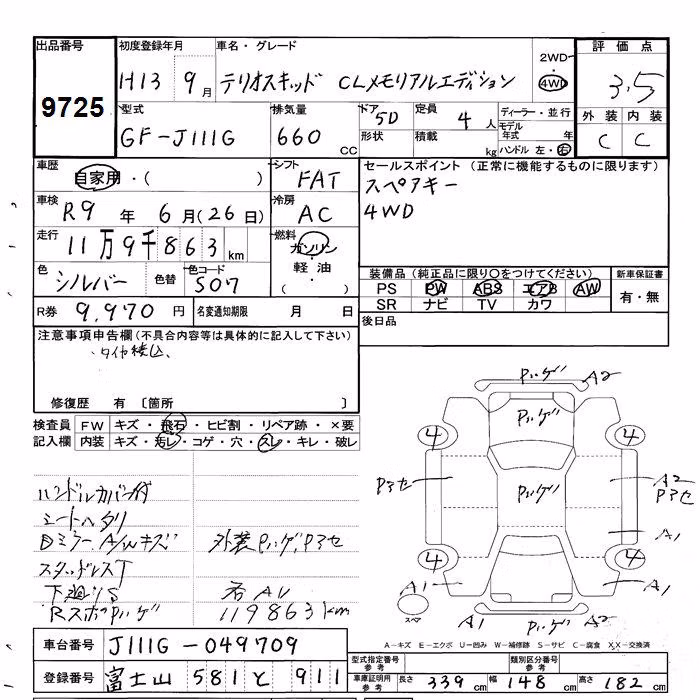 出品番号 初度登録年月 車名・グレード 2WD・4WD 評価点
9725 H13 9月 テリオスキッド CLメモリアルエディション 3.5
型式 排気量 ドア 5D 定員 4人 ディーラー・並行 外装 内装
GF-J111G 660 CC 形状 積載 kg モデル年式 年 C C
ハンドル 左・右
車歴 自家用・( ) シフト FAT セールスポイント (正常に機能するものに限ります)
スペアキー
車検 R9年 6月(26日) 冷房 AC 4WD
走行 11万9千863km 燃料 ガソリン・軽油・( )
色 シルバー 色替 色コード S07 装備品(純正品に限り○をつけてください) 新車保証書
PS PW ABS エアB AW 有・無
SR ナビ TV カワ
R券 9,970円 名変通知期限 月 日 後日品
注意事項申告欄(不具合内容等は具体的に記入して下さい)
タイヤ積込、
修復歴 有 〔箇所 〕
検査員 FW キズ・飛石・ヒビ割・リペア跡・×要
記入欄 内装 キズ・汚レ・コゲ・穴・スレ・キレ・破レ
ハンドルカバー付
シートヘタリ
ミラー、A/Wキズ 外装Pハゲ、Pアセ
スタッドレスT
下廻りS
RスポPハゲ 119863km
Pハゲ A2
Pハゲ
4 4
Pアセ Pハゲ A2
Pアセ
A1
4 4
A1 A1
スペア
A1 Pハゲ A2
A-キズ E-エクボ U-凹み W-補修跡 S-サビ C-腐食 X,X-交換済
車台番号 J111G-049709
型式指定番号 参考 類別区分番号 参考
登録番号 富士山 581 と 911
車庫証明用 参考 長さ 339cm 幅 148cm 高さ 182cm